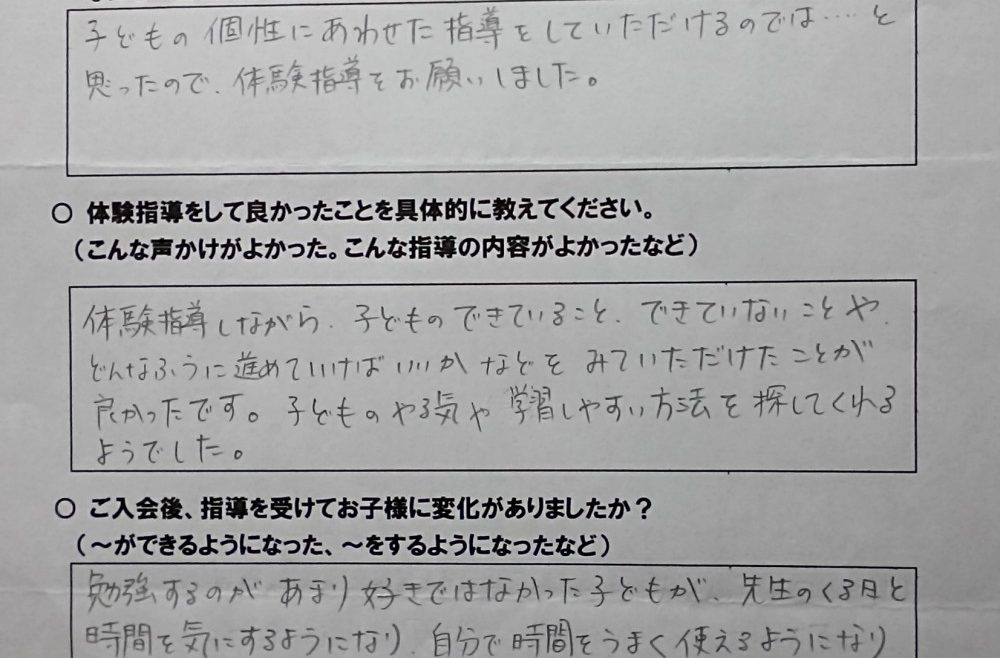 子どもの個性にあわせた指導をしていただけるのでは‥‥と
思ったので、体験指導をお願いしました。
○ 体験指導をして良かったことを具体的に教えてください。
（こんな声かけがよかった。こんな指導の内容がよかったなど）
体験指導しながら、子どものできていること、できていないことや、
どんなふうに進めていけばいいかなどをみていただけたことが
良かったです。子どものやる気や学習しやすい方法を探してくれる
ようでした。
○ ご入会後、指導を受けてお子様に変化がありましたか？
（～ができるようになった、～をするようになったなど）
勉強するのがあまり好きではなかった子どもが、先生のくる日と
時間を気にするようになり、自分で時間をうまく使えるようになり